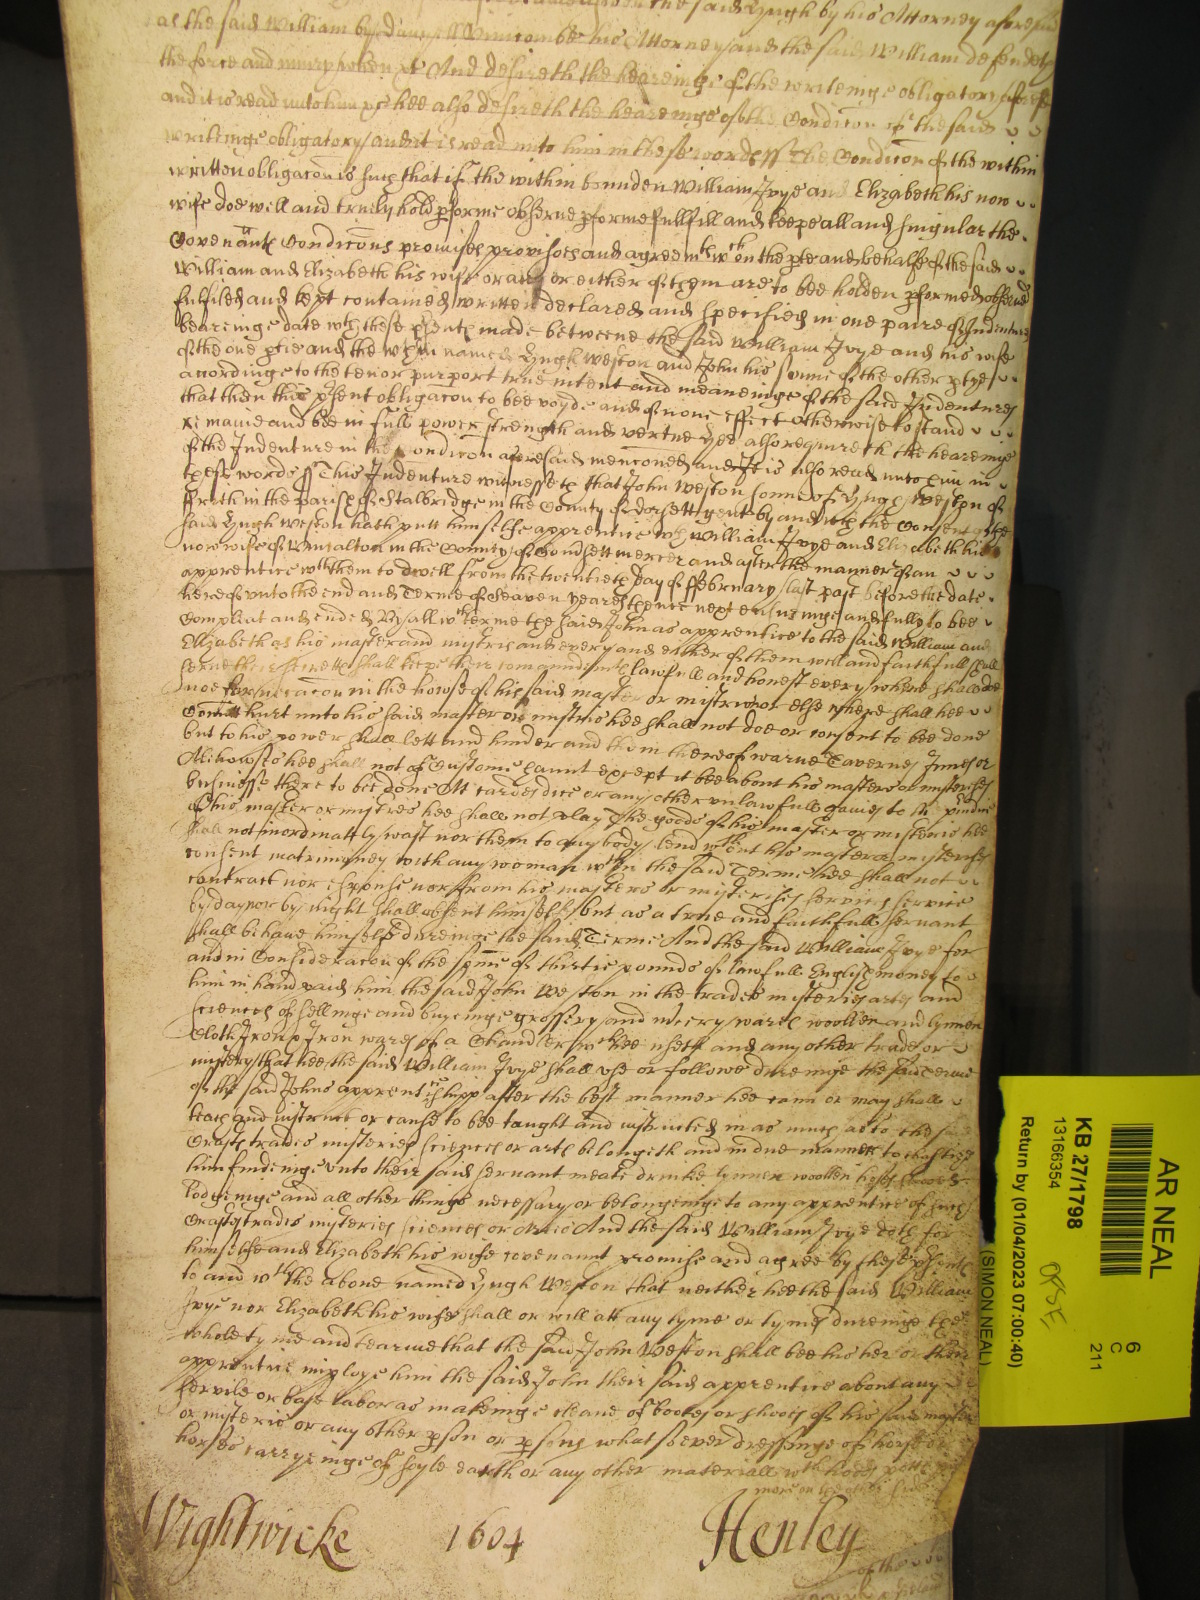 the said Hugh by his Attorney aforesaid
as the said William by Vincombe his Attorney and the said William defendeth
the force and iniury when &c And desireth the heareinge of the writeinge obligatory aforesd
and it is read unto him &c hee also desireth the heareinge of the Condicon of the said
writeinge obligatory and it is read unto him in these words ss The Condicon of the within
written obligacon is such that if the within bounden William Ivye and Elizabeth his now
wife doe well and truely hold pforme observe pforme fullfill and keepe all and singular the
Covenants Condicons promises provisoes and agreemts wch on the pte and behalfe of the said
William and Elizabeth his wife or any or either of them are to bee holden pformed observed
fulfilled and kept contained written declared and specified in one paire of Indentures
beareinge date wth these psents made betweene the said William Ivye and his wife
of the one ptie and the wthin named Hugh Weston and John his sonne of the other ptye
accordinge to the tenor purport true intent and meaneinge of the said Indentures
that then this psent obligacon to bee voyde and of none effect otherwise to stand
remaine and bee in full power strength and vertue Hee also requireth the heareinge
of the Indenture in the Condicon aforesaid menconed and It is also read unto him in
these words ss This Indenture witnesseth that John Weston sonne of Hugh Weston of
in the parish of Stalbridge in the County of Dorsett gent by and with the Consent of the
said Hugh Weston hath putt himselfe apprentice wth William Ivye and Elizabeth his
now wife of in the County of mercer and after the manner of an
apprentice wth them to dwell from the twentieth day of ffebruary last past before the date
hereof unto the end and Terme of Seaven yeares thence next ensuinge and fully to bee
Compleat and ended By all wch terme the said John as apprentice to the said William and
Elizabeth as his master and mystris and every and either of them well and faithfull shall
serve their secretts shall keepe their comaundmts lawfull and honest every where shall doe
noe fornicacon in the howse of his said master or mistris nor else where shall hee
Comitt hurt unto his said master or mistris hee shall not doe or consent to bee done
but to his power shall lett and hinder and them thereof warne Tavernes Innes or
Alehowses hee shall not of Custome haunt except it bee about his masters or misterises
businesse there to bee done Att cardes dice or any other unlawfull games to the
of his master or mistres hee shall not play The goods of his master or misteris hee
shall not inordinatly wast nor them to any body lend wthout his masters or misterises
consent matrimoney with any woman wthin the said Terme hee shall not
contract nor espouse nor from his masters or misterises service
by day nor by night shall absent himselfe but as a true and faithfull servant
shall behave himselfe dureinge the said Terme And the said William Ivye for
and in Consideracon of the sume of thirtie pounds of lawfull English money to
him in hand paid him the said John Weston in the trades misteries artes and
sciences of sellinge and buyeinge grossery and mcery wares woollen and lynnen
Cloth Iron Iron wares of a Chandler wch hee useth and any other trade or
mistery that hee the said William Ivye shall use or followe dureinge the said terme
of the said Johns apprentishipp after the best manner hee cann or may shall
teach and instruct or cause to bee taught and instructed in as much as to the said
Crafts trades misteries sciences or arts belongeth and in due manner to chastice
him findeinge unto their said servant meate drinke lynnen woollen hose shooes
lodgeinge and all other things necessary or belongeinge to any apprentice of such
Crafts trades misteries sciences or And the said William Ivye doth for
himselfe and Elizabeth his wife covenannt promise and agree by these psents
to and wth the above named Hugh Weston that neither hee the said William
Ivye nor Elizabeth his wife shall or will att any tyme or tymes dureinge the
whole tyme and tearme that the said John Weston shall bee his her or their
apprentice imploye him the said John their said apprentice about any
servile or base labor as makeinge cleane of bootes or shooes of his said master
or misteris or any other pson or psons whatsoever dressinge of horse or
horses carryeinge of soyle earth or any other materiall wth
more on the other side
Wightwicke 1604 Henley
of the
AR NEAL
6
C
211
KB 27/1798
13166354
Return by (01/04/2023 07:00:40)
(SIMON NEAL)